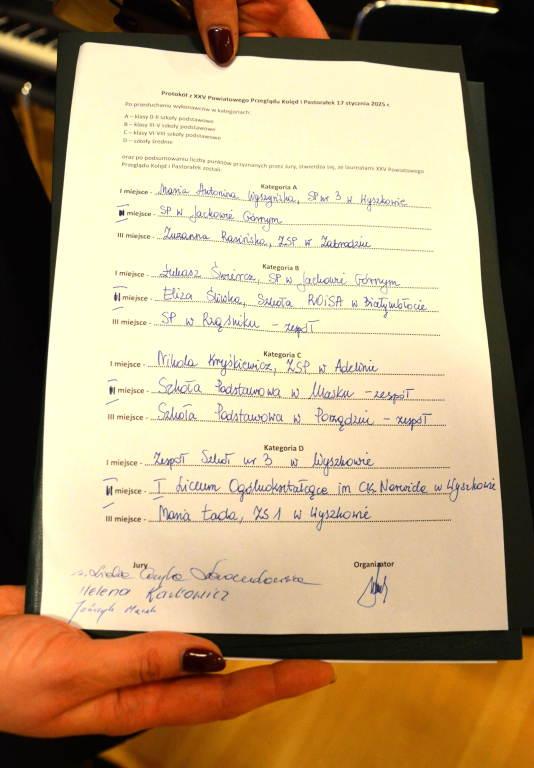 Protokół z XXV Powiatowego Przeglądu Kolęd i Pastorałek 17 stycznia 2025 r.
Po przesłuchaniu wykonawców w kategoriach:
A – klasy 0-II szkoły podstawowe
B – klasy III-V szkoły podstawowe
C – klasy VI-VIII szkoły podstawowe
D – szkoły średnie
oraz po podsumowaniu liczby punktów przyznanych przez Jury, stwierdza się, że laureatami XXV Powiatowego
Przeglądu Kolęd i Pastorałek zostali:
Kategoria A
I miejsce - Maria Antonina Wyszyńska, SP nr 3 w Wyszkowie
II miejsce - SP w Jackowie Górnym
III miejsce - Zuzanna Rasińska, ZSP w Zabrodziu
Kategoria B
I miejsce - Łukasz Świercz, SP w Jackowie Górnym
II miejsce - Eliza Śliwka, Szkoła ROiSA w Białymbłocie
III miejsce - SP w Rząśniku - zespół
Kategoria C
I miejsce - Nikola Kryśkiewicz, ZSP w Adelinie
II miejsce - Szkoła Podstawowa w Mąsku - zespół
III miejsce - Szkoła Podstawowa w Porządziu - zespół
Kategoria D
I miejsce - Zespół Szkół nr 3 w Wyszkowie
II miejsce - I Liceum Ogólnokształcące im CK Norwida w Wyszkowie
III miejsce - Maria Łada, ZS 1 w Wyszkowie
Jury Organizator
Helena
Marek